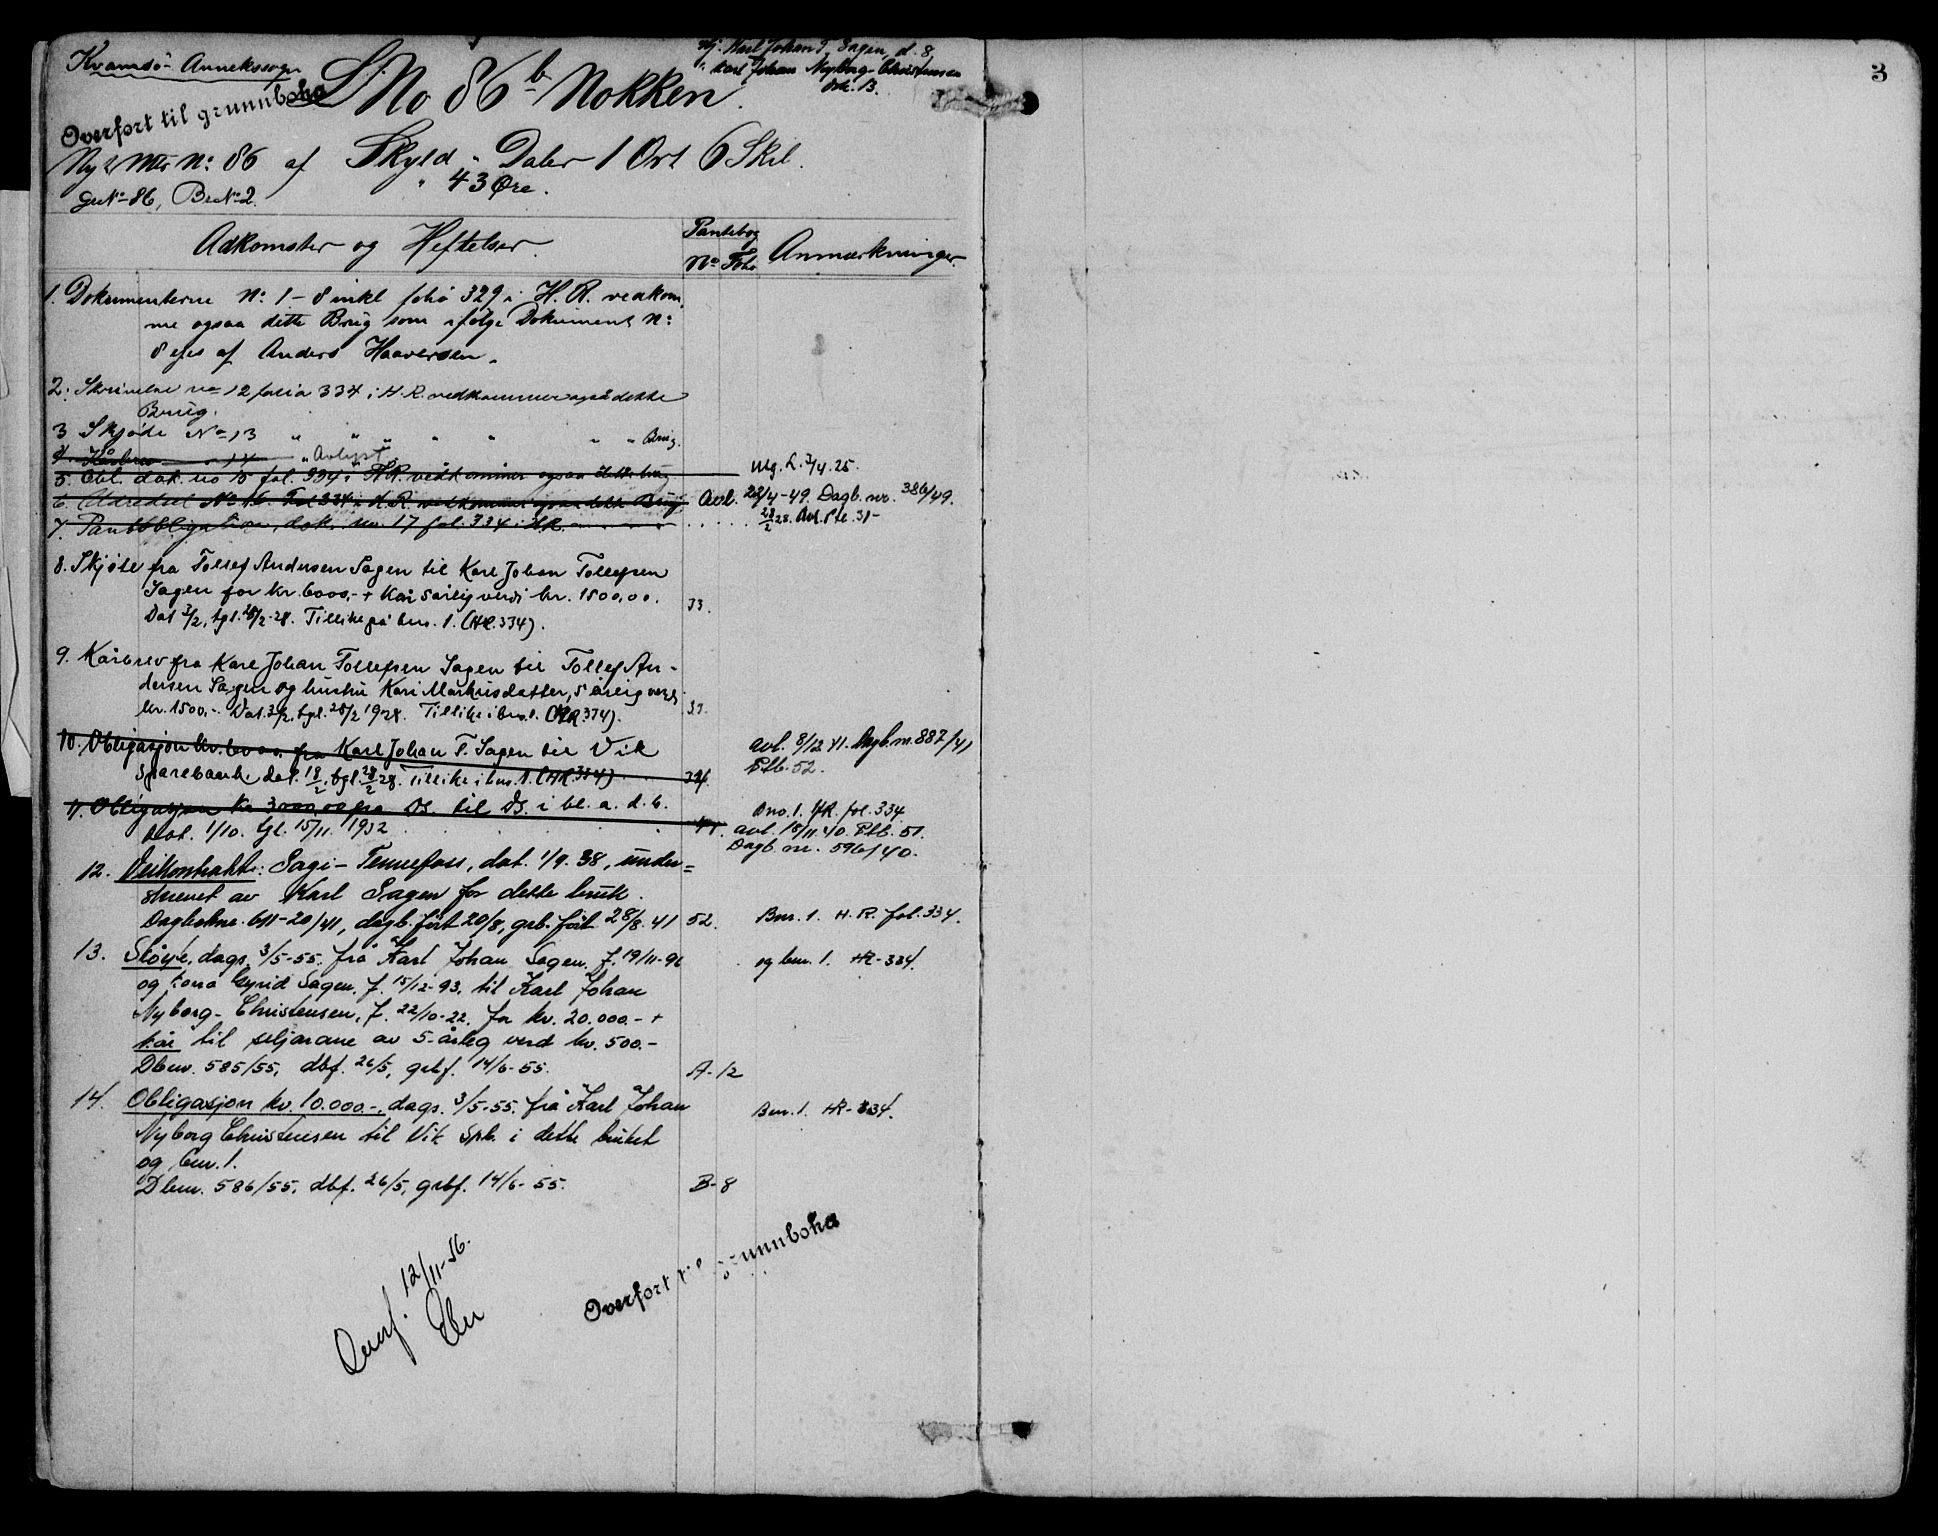 Kvamsö Annekssogn
Hj. Karl Johan T. Sagen, d. 8
" Karl Johan Nyborg-Christensen
Dok. 13.
L No 86 b Nokken.
Overført til grunnboka
Ny Mtr No 86 af Skyld " Daler 1 Ort 6 Skil.
GNo 86, BNo 2. " 43 Øre.
Adkomster og Heftelser. Pantebog Anmærkninger.
No Folio
1. Dokumenterne No 1 - 8 inkl folio 329 i H. R. vedkom
me ogsaa dette Brug som ifølge Dokument No
8 ejes af Anders Haaversen.
2. Skrivelse no 12 folio 334 i H. R. vedkommer også dette
Brug.
3 Skjøde No 13 " " " " " " " Brug.
4. Kårbrev " 14 " Avlyst
5. Obl. dok. no 15 fol. 334 i H.R. vedkommer ogsaa dette brug Utg. L. 3/4.25.
6. Utdrdsel No 16 Fol 334 i H.R. vedkommer ogsaa dette Brug Avl. 22/4-49. Dagb. nr. 386/49.
7. Pantobligation, dok. no. 17 fol. 334 i HR. 28/2 28. Avl. Ptb. 31-
8. Skjøte fra Tollef Andersen Sagen til Karl Johan Tollefsen
Sagen for kr. 6000,- + Kår 5årlig verdi kr. 1500,00. 33.
Dat 3/2, tgl. 28/2-28. Tillike på bnr. 1. (HR. 334).
9. Kårbrev fra Karl Johan Tollefsen Sagen til Tollef An-
dersen Sagen og hustru Kari Markusdatter, 5 årlig verdi
kr. 1500.-. Dat. 3/2, tgl. 28/2 1928. Tillike i bnr. 1. (HR 334). 33.
10. Obligasjon kr. fra Karl Johan T. Sagen til Vik avl. 8/12 41. Dagb. nr. 887/41
Sparebank. dat. 18/2, tgl. 28/2 28. Tillike i bnr. 1. (HR 334) Ptb. 52.
11. Obligasjon kr 3000,00 fra Ds. til Ds. i bl. a. d. b. Dno. 1. HR. fol. 334
Dat. 1/10. tgl. 15/11. 1932 41. avl. 18/11.40. Ptb. 51.
Dagb. nr. 596/40.
12. Veikontrakt: Sagi - Tennefoss, dat. 1/9. 38, under=
skrevet av Karl Sagen for dette bruk.
Dagboknr. 611-20/41, dagb. ført 20/8, grb. ført 28/8. 41 52. Bnr. 1. H. R. fol. 334.
13. Skøyte, dags. 3/5-55. frå Karl Johan Sagen. f. 19/11-92 og bnr. 1. HR-334.
og kona Gyrid Sagen. f. 15/12-93. til Karl Johan
Nyborg-Christensen, f. 22/10-22. for kr. 20.000.- +
kår til seljarane av 5-årleg verd kr. 500.-
Dbnr. 585/55, dbf. 26/5, grbf. 14/6-55. A-12
14. Obligasjon kr. 10.000.-, dags. 3/5-55. frå Karl Johan Bnr. 1. HR-334.
Nyborg Christensen til Vik Spb. i dette bruket
og bnr. 1.
Dbnr. 586/55, dbf. 26/5, grbf. 14/6-55. B-8
Overf. 12/11-56.
Overført til grunnboka
3